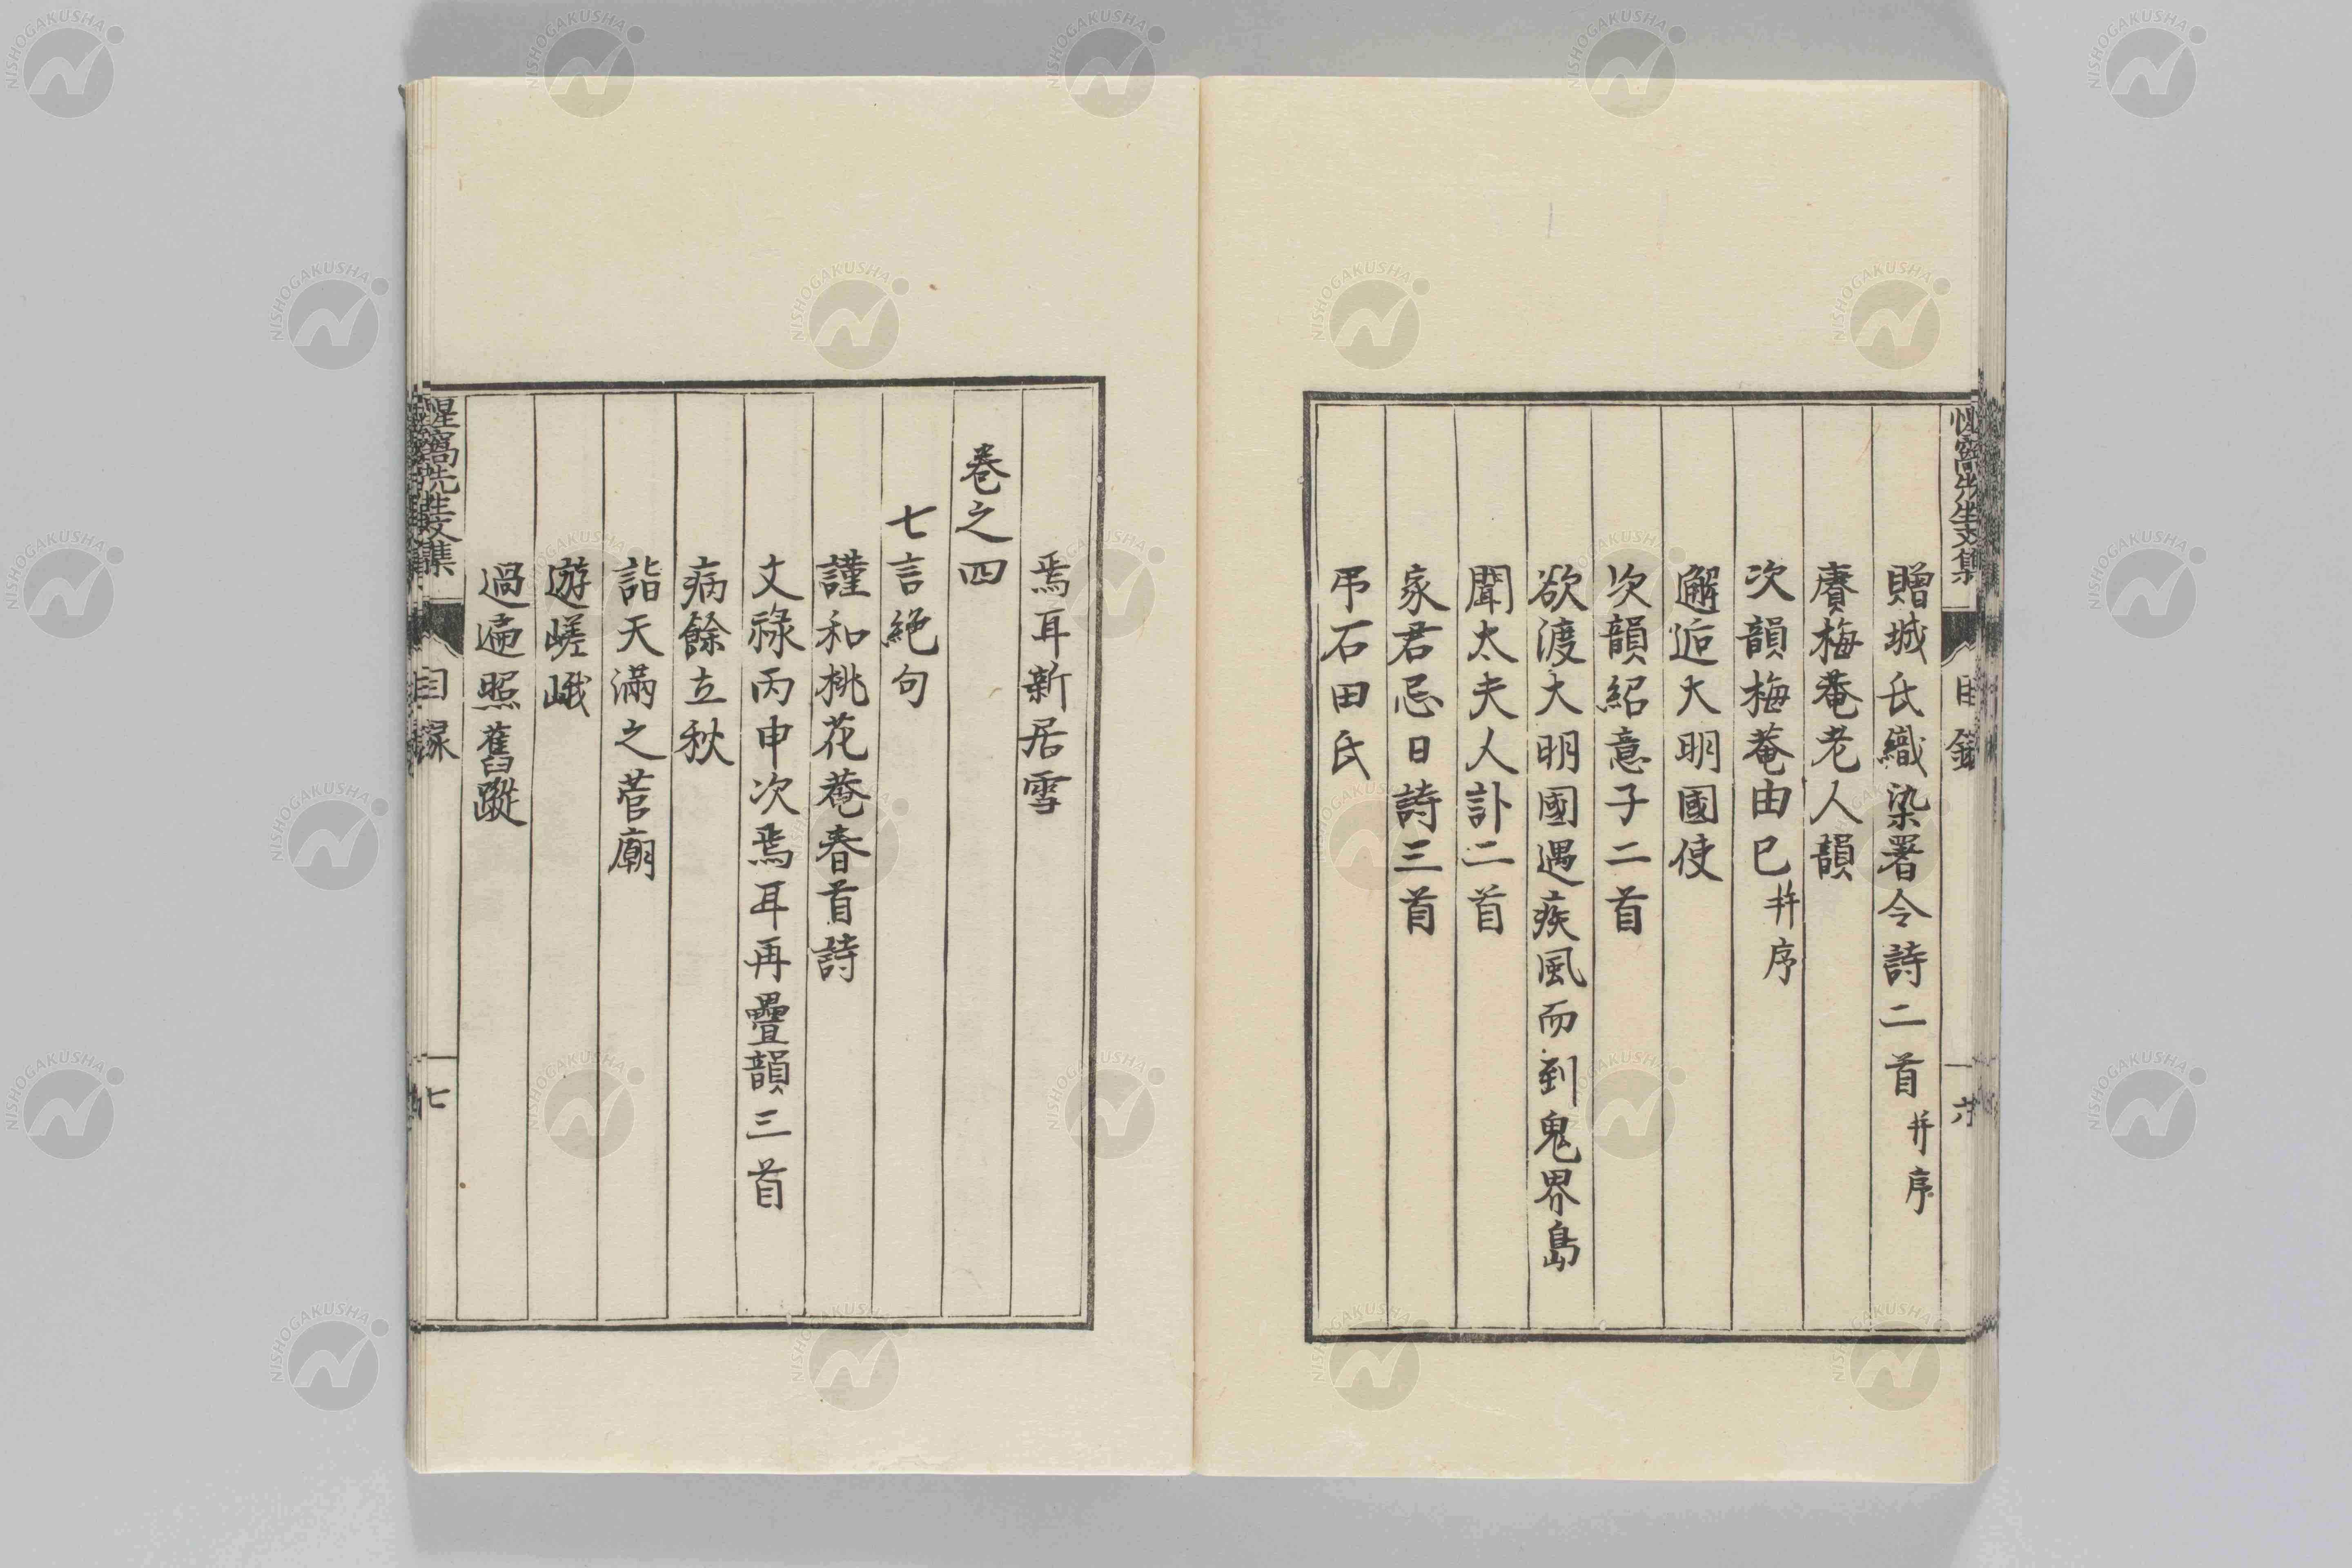 惺窩先生文集
目錄
六
贈城氏織染署令詩二首并序
賡梅菴老人韻
次韻梅菴由巳并序
邂逅大明國使
次韻紹意子二首
欲渡大明國遇疾風而到鬼界島
聞太夫人訃二首
家君忌日詩三首
弔石田氏
焉耳新居雪
卷之四
七言絶句
謹和桃花菴春首詩
文祿丙申次焉耳再疊韻三首
病餘立秋
詣天滿之菅廟
遊嵯峨
過遍照舊蹤
惺窩先生文集
目錄
七
NISHOGAKUSHA